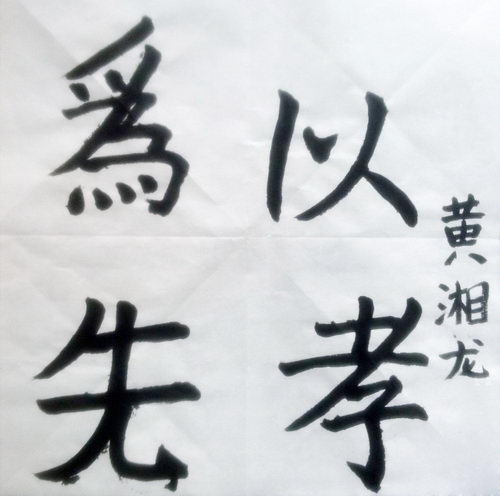 以孝
爲先
黄湘龙